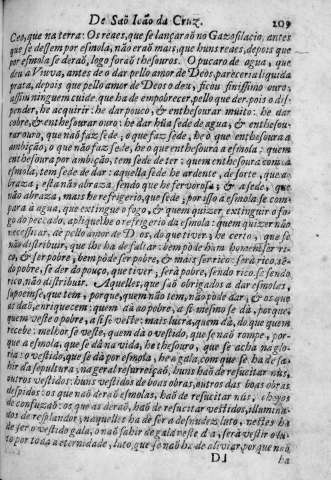 De Saõ Ioão da Cruz. 209
Ceo, que na terra: Os reaes, que se lançaraõ no Gazofilacio, antes
que se dessem por esmola, não eraõ mais, que huns reaes, depois que
por esmola se deraõ, logo foraõ thesouros. O pucaro de agua, que
deu a Viuva, antes de o dar pello amor de Deos, pareceria liquida
prata, depois que pello amor de Deos o deu, ficou finissimo ouro,
assim ninguem cuide, que ha de empobrecer, pello que der, pois o dis-
pender, he acquirir: he dar pouco, & enthesourar muito: he dar
cobre, & enthesourar ouro: he dar hũa sede de agua, & enthesou-
rar ouro, que naõ faz sede, o que faz sede, he o que enthesoura a
ambição, o que naõ faz sede, he o que enthesoura a esmola: quem
enthesoura por ambição, tem sede de ter: quem enthesoura com a
esmola, tem sede de dar: aquella sede he ardente, de sorte, que a-
braza; esta naõ abraza, sendo que he fervorosa; & a sede, que
não abraza, mais he refrigerio, que sede; por isso a esmola se com-
para à agua, que extingue o fogo, & quem quizer extinguir o fo-
go do peccado, aplique lhe o refrigerio da esmola: quem quizer não
necessitar, dè pello amor de Deos, do que tiver, he certo, que se
não distribuir, que lhe ha de faltar: bem pòde hum homem ser ri-
co, & ser pobre, bem pòde ser pobre, & mais ser rico: serà rico, sẽ-
do pobre, se der do pouco, que tiver; serà pobre, sendo rico, se sendo
rico, não distribuir. Aquelles, que saõ obrigados a dar esmolas,
supoemse, que tem, porque, quem naõ tem, naõ pòde dar, & os que
as daõ, enriquecem: quem dà ao pobre, a si mesmo se dà, porque,
quem veste o pobre, a si se veste: mais lucra, quem dà, do que quem
recebe: melhor se veste, quem dà o vestido, que se naõ rompe, por-
que a esmola, que se dà na vida, he thesouro, que se acha na glo-
ria: o vestido, que se dà por esmola, he a gala, com que se ha de sa-
hir da sepultura; na geral resurreiçaõ, huns haõ de resuscitar nùs,
outros vestidos: huns vestidos de boas obras, outros das boas obras
despidos: os que naõ deraõ esmolas, haõ de resuscitar nùs, cheyos
de confusaõ: os que as deraõ, haõ de resuscitar vestidos, illumina-
dos de resplandor, naquelles ha de ser a desnudez luto, nestes ha
de ser o vestido gala, o naõ sahir de gala neste dia, serà vestir o lu-
to por toda a eternidade, luto, que se naõ ha de tirar, porque naõ
Dd ha